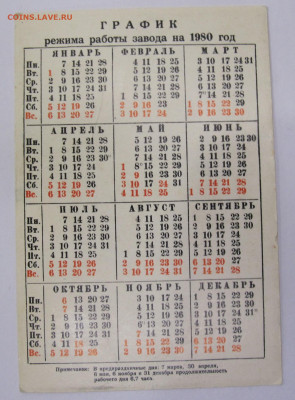 COINSS.LAVE.RU
ГРАФИК
режима работы завода на 1980 год
ЯНВАРЬ ФЕВРАЛЬ МАРТ
Пн. 7 14 21 28 4 11 18 25 3 10 17 24 31
Вт. 1 8 15 22 29 5 12 19 26 4 11 18 25
Ср. 2 9 16 23 30 6 13 20 27 5 12 19 26
Чт. 3 10 17 24 31 7 14 21 28 6 13 20 27
Пт. 4 11 18 25 1 8 15 22 29 7 14 21 28
Сб. 5 12 19 26 2 9 16 23 1 8 15 22 29
Вс. 6 13 20 27 3 10 17 24 2 9 16 23 30
АПРЕЛЬ МАЙ ИЮНЬ
Пн. 7 14 21 28 5 12 19 26 2 9 16 23 30
Вт. 1 8 15 22 29 6 13 20 27 3 10 17 24
Ср. 2 9 16 23 30 7 14 21 28 4 11 18 25
Чт. 3 10 17 24 1 8 15 22 29 5 12 19 26
Пт. 4 11 18 25 2 9 16 23 30 6 13 20 27
Сб. 5 12 19 26 3 10 17 24 31 7 14 21 28
Вс. 6 13 20 27 4 11 18 25 1 8 15 22 29
ИЮЛЬ АВГУСТ СЕНТЯБРЬ
Пн. 7 14 21 28 4 11 18 25 1 8 15 22 29
Вт. 1 8 15 22 29 5 12 19 26 2 9 16 23 30
Ср. 2 9 16 23 30 6 13 20 27 3 10 17 24
Чт. 3 10 17 24 31 7 14 21 28 4 11 18 25
Пт. 4 11 18 25 1 8 15 22 29 5 12 19 26
Сб. 5 12 19 26 2 9 16 23 30 6 13 20 27
Вс. 6 13 20 27 3 10 17 24 31 7 14 21 28
ОКТЯБРЬ НОЯБРЬ ДЕКАБРЬ
Пн. 6 13 20 27 3 10 17 24 1 8 15 22 29
Вт. 7 14 21 28 4 11 18 25 2 9 16 23 30
Ср. 1 8 15 22 29 5 12 19 26 3 10 17 24 31
Чт. 2 9 16 23 30 6 13 20 27 4 11 18 25
Пт. 3 10 17 24 31 7 14 21 28 5 12 19 26
Сб. 4 11 18 25 1 8 15 22 29 6 13 20 27
Вс. 5 12 19 26 2 9 16 23 30 7 14 21 28
Примечание: В предпраздничные дни: 7 марта, 30 апреля,
8 мая, 6 ноября и 31 декабря продолжительность
рабочего дня 6,7 часа.